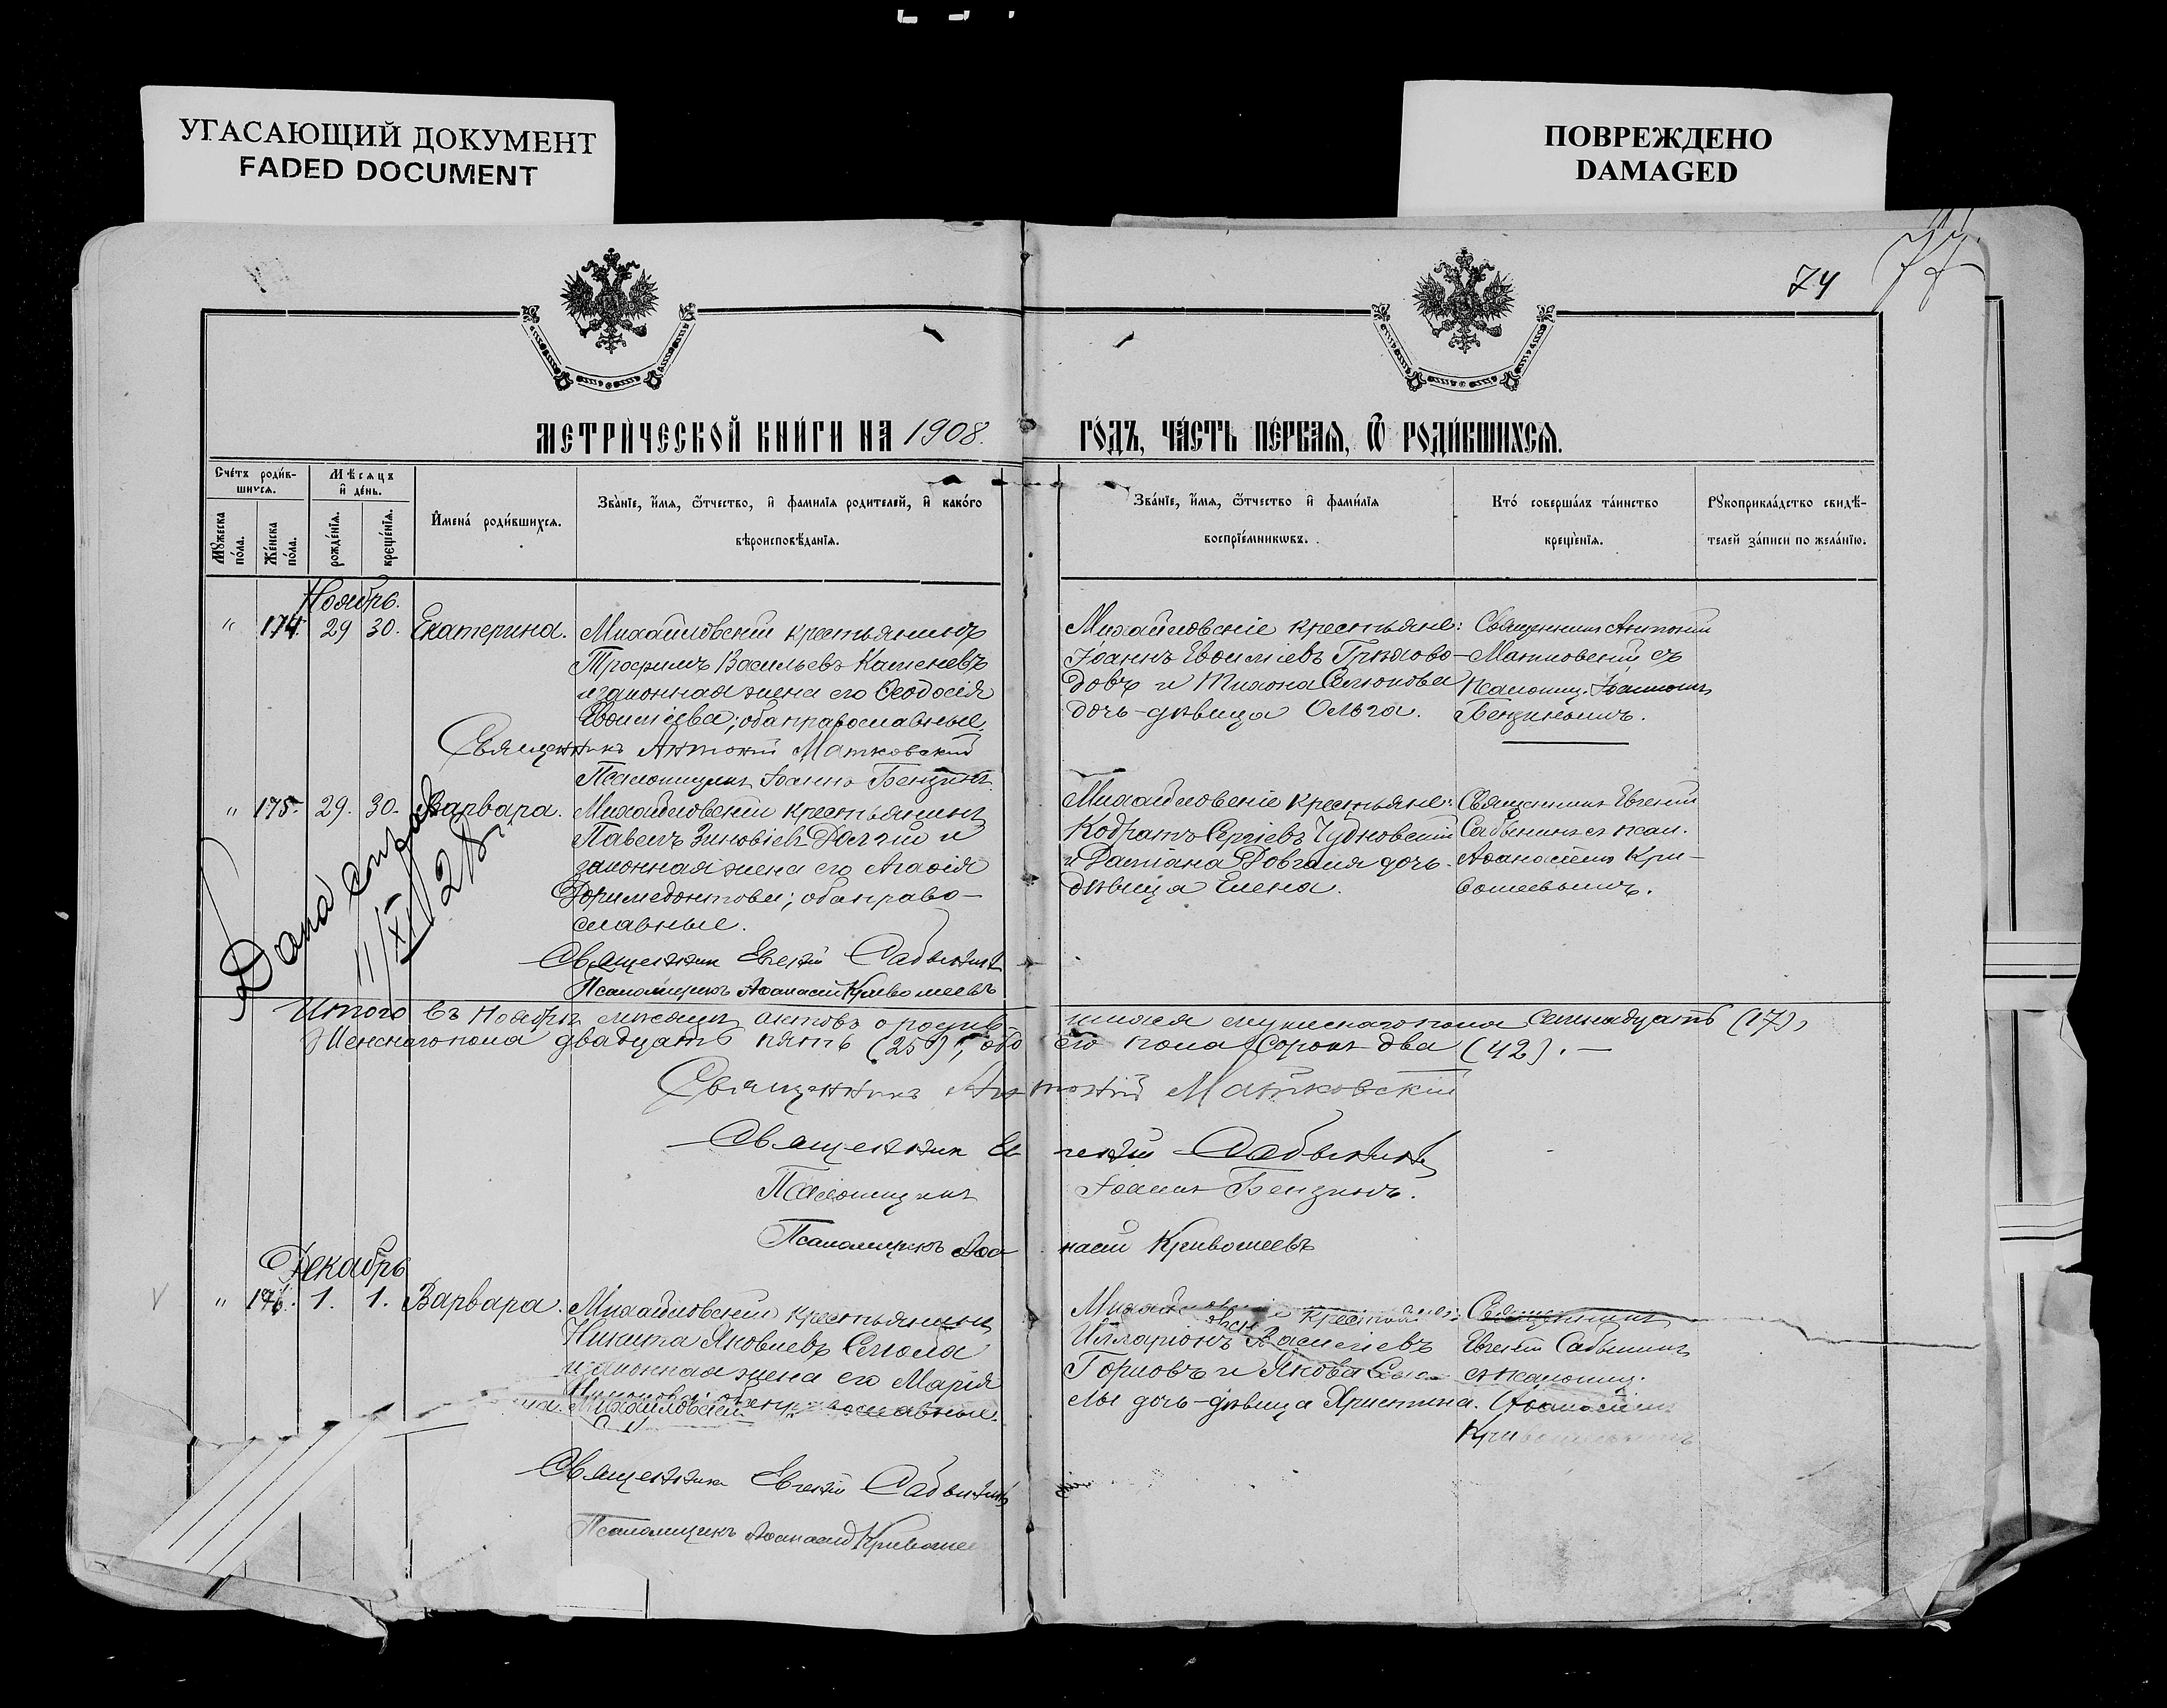 УГАСАЮЩИЙ ДОКУМЕНТ
FADED DOCUMENT
ПОВРЕЖДЕНО
DAMAGED
74
77
МЕТРИЧЕСКОЙ КНИГИ НА 1908.
ГОДЪ, ЧАСТЬ ПЕРВАЯ, Ѿ РОДИВШИХСЯ.
Счетъ родив-
шихся.
Мѣсяцъ
и день.
Мужеска
пола.
Женска
пола.
рожденія.
крещенія.
Имена родившихся.
Званіе, имя, ѿтчество, и фамилія родителей, и какого
вѣроисповѣданія.
Званіе, имя, ѿтчество и фамилія
воспріемниковъ.
Кто совершалъ таинство
крещенія.
Рукоприкладство свидѣ-
телей записи по желанію.
Ноябрь.
" 174. 29 30. Екатерина.
Михайловскій крестьянинъ
Трофимъ Васильевъ Каменевъ
и законная жена его Ѳеодосія
Евѳиміева; оба православные.
Священникъ Антоній Матковскій
Псаломщикъ Іоаннъ Бензинъ
Михайловскіе крестьяне:
Іоаннъ Евѳиміевъ
довъ и Тихона Семенова
дочь-дѣвица Ольга.
Священникъ Антоній
Матковскій съ
псаломщ. Іоанномъ
Бензинымъ.
" 175. 29. 30. Варвара.
Михайловскій крестьянинъ
Павелъ Зиновіевъ Долгій и
законная жена его Агаѳія
Формедонтова; оба право-
славные.
Священникъ Евгеній Сабынинъ
Псаломщикъ Аѳанасій Кривошеевъ
Михайловскіе крестьяне:
Кодратъ Сергіевъ Чудновскій
и Даміана Довгаля дочь-
дѣвица Елена.
Священникъ Евгеній
Сабынинъ съ псал.
Аѳанасіемъ Кри-
вошеевымъ.
Дана
11/XI 28
Итого въ Ноябрѣ мѣсяцѣ актовъ о родив-
шихся мужескаго пола семнадцать (17),
Женскаго пола двадцать пять (25), обо
его пола сорокъ два (42). —
Священникъ Антоній Матковскій
Священникъ Евгеній Сабынинъ
Псаломщикъ Іоаннъ Бензинъ.
Псаломщикъ Аѳанасій Кривошеевъ
Декабрь
" 176. 1. 1. Варвара.
Михайловскій крестьянинъ
Никита Яковлевъ Семола
и законная жена его Марія
оба православные.
Михайловскій
Священникъ Евгеній Сабынинъ
Псаломщикъ Аѳанасій Кривошеевъ
Михайловскіе крестьяне:
Илларіонъ Васильевъ
Горловъ и Якова
лы дочь-дѣвица Христина.
Священникъ
Евгеній Сабынинъ
съ псаломщ.
Аѳанасіемъ
Кривошеевымъ